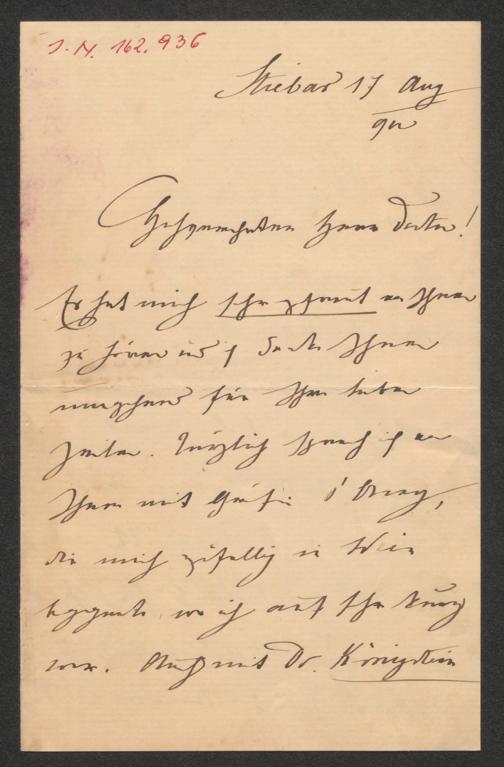 I. N. 162.936
Stiebar 17 Aug
90
Hochgeehrter Herr Doctor!
Es hat mich sehr gefreut von Ihnen
zu hören und ich danke Ihnen
umgehend für Ihre lieben
Zeilen. Kürzlich sprach ich von
Ihnen mit Gräfin
die mich zufällig in Wien
begegnete, wo ich auf sehr kurz
war. Auch mit Dr. Königstein